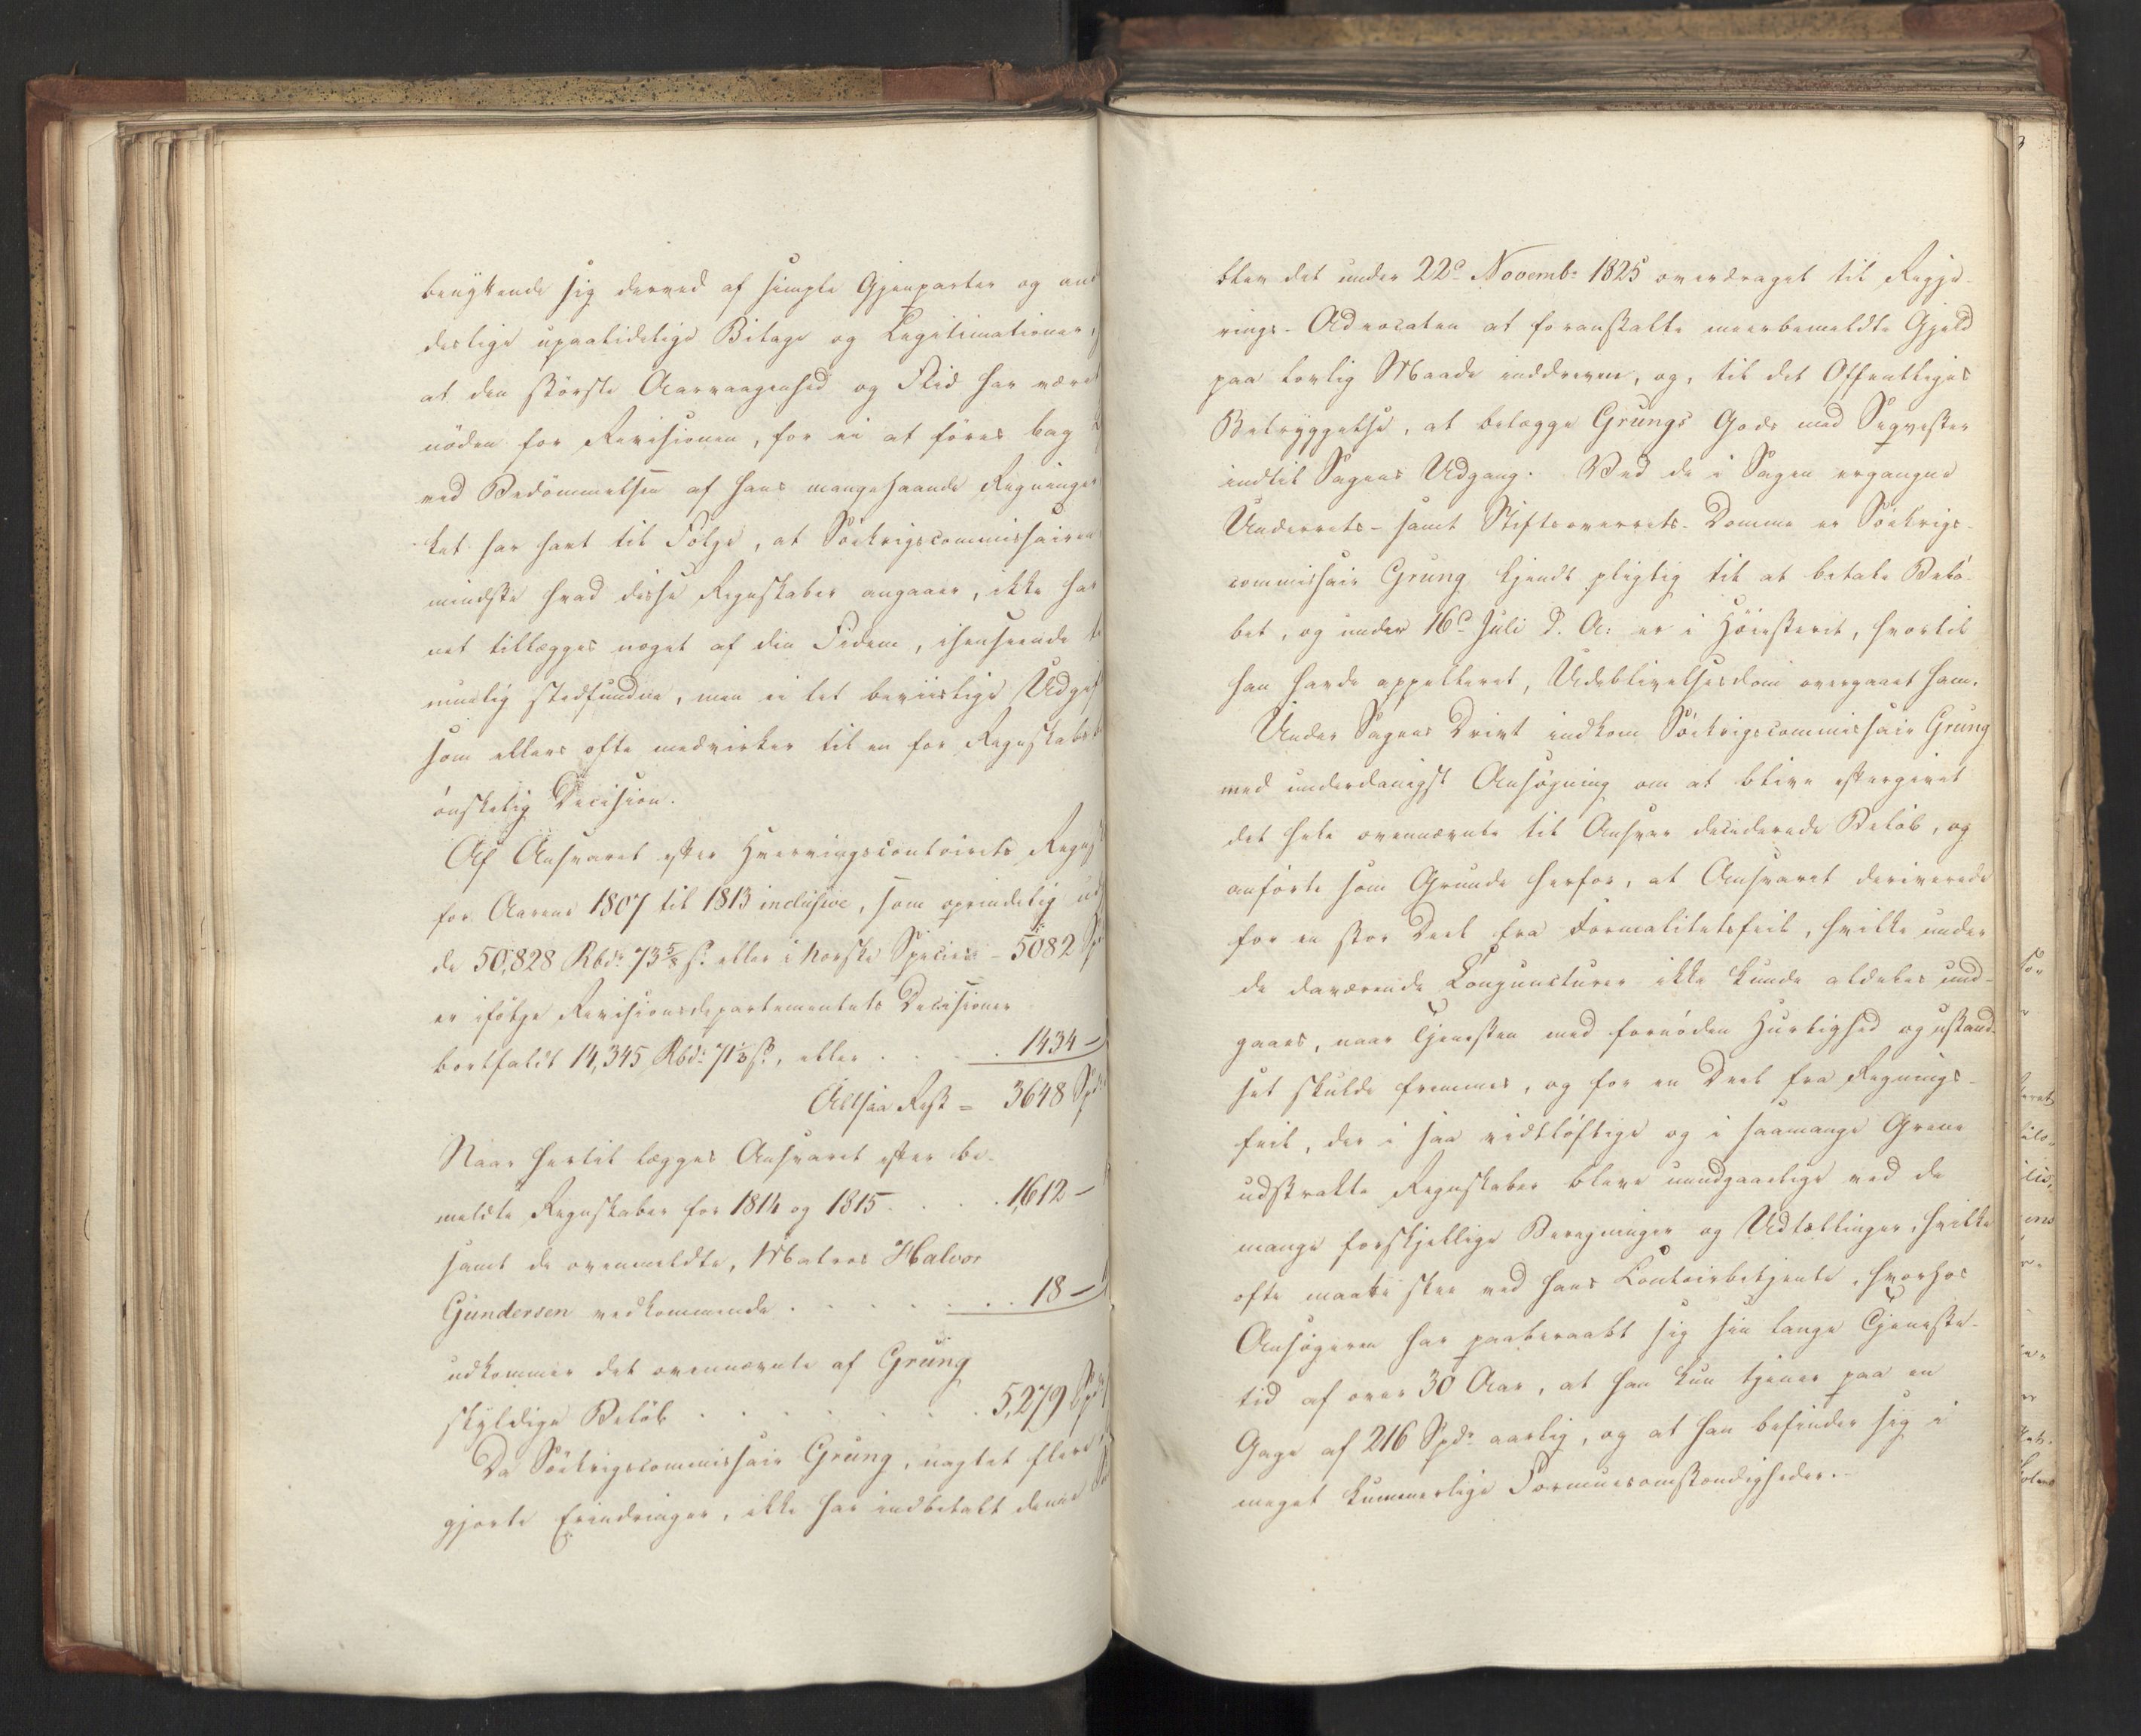 benyttende sig derved af simple Gjenparter og an
deslige upaalidelige Bilage og Legitimationer,
at den störste Aarvaagenhed og Flid har være
nöden for Revisionen, for ei at föres bag
ved Bedömmelsen af hans mangehaande Regninger
ket har havt til Fölge, at Söekrigscommissairen
mindste hvad disse Regnskaber angaaer, ikke har
net tillægges noget af den Fidem, ihenseende
muelig stedfundne, men ei let beviislige Udgif
som ellers ofte medvirker til en for Regnskabs
önskelig Decision.
Af Ansvaret efter Hvervingscontoirets Regns
for Aarene 1807 til 1813 inclusive, som oprindelig ud
de 50,828 Rbdr 73 5/8 s. eller i norske Species - 5082 Sp
er ifölge Revisionsdepartementets Decisioner
bortfaldt 14,345 Rbdr 71 1/3 s., eller . . . 1434 -
Altsaa Rest = 3648 Spd
Naar hertil lægges Ansvaret efter be-
meldte Regnskaber for 1814 og 1815 . . . 1,612 -
samt de ovenmeldte, Matros Halvor
Gundersen vedkommende . . . . . . 18 -
udkommer det ovennævnte af Grung
skyldige Belöb . . . . . . . 5,279 Spd
Da Söekrigscommissair Grung, uagtet flere
gjorte Erindringer, ikke har indbetalt denne
blev det under 22d Novembr 1825 overdraget til Regje-
rings-Advocaten at foranstalte meerbemeldte Gjeld
paa lovlig Maade inddreven, og, til det Offentliges
Betryggelse, at belægge Grungs Gods med Seqvester
indtil Sagens Udgang. Ved de i Sagen ergangne
Underrets- samt Stiftsoverrets-Domme er Söekrigs-
commissair Grung kjendt pligtig til at betale Belö-
bet, og under 16d Juli d. A: er i Höiesteret, hvortil
han havde appelleret, Udeblivelsesdom overgaaet ham.
Under Sagens Drivt indkom Söekrigscommissair Grung
med underdanigst Ansögning om at blive eftergivet
det hele ovennævnte til Ansvar deciderede Belöb, og
anförte som Grunde herfor, at Ansvaret deriverede
for en stor Deel fra Formalitetsfeil, hvilke under
de daværende Conjuncturer ikke kunde aldeles und-
gaaes, naar Tjenesten med fornöden Hurtighed og ustand-
set skulde fremmes, og for en Deel fra Regnings-
feil, der i saa vidtlöftige og i saamange Grene
udstrakte Regnskaber bleve uundgaaelige ved de
mange forskjellige Beregninger og Udtællinger, hvilke
ofte maatte skee ved hans Contoirbetjente, hvorhos
Ansögeren har paaberaabt sig sin lange Tjeneste-
tid af over 30 Aar, at han kun tjener paa en
Gage af 216 Spdr aarlig, og at han befinder sig i
meget kummerlige Formuesomstændigheder.-